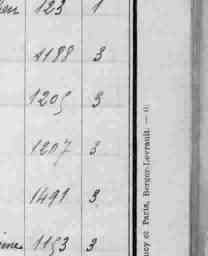 123 1
1188 3
1205 3
1207 3
1491 3
1193 3
ncy et Paris, Berger-Levrault. —